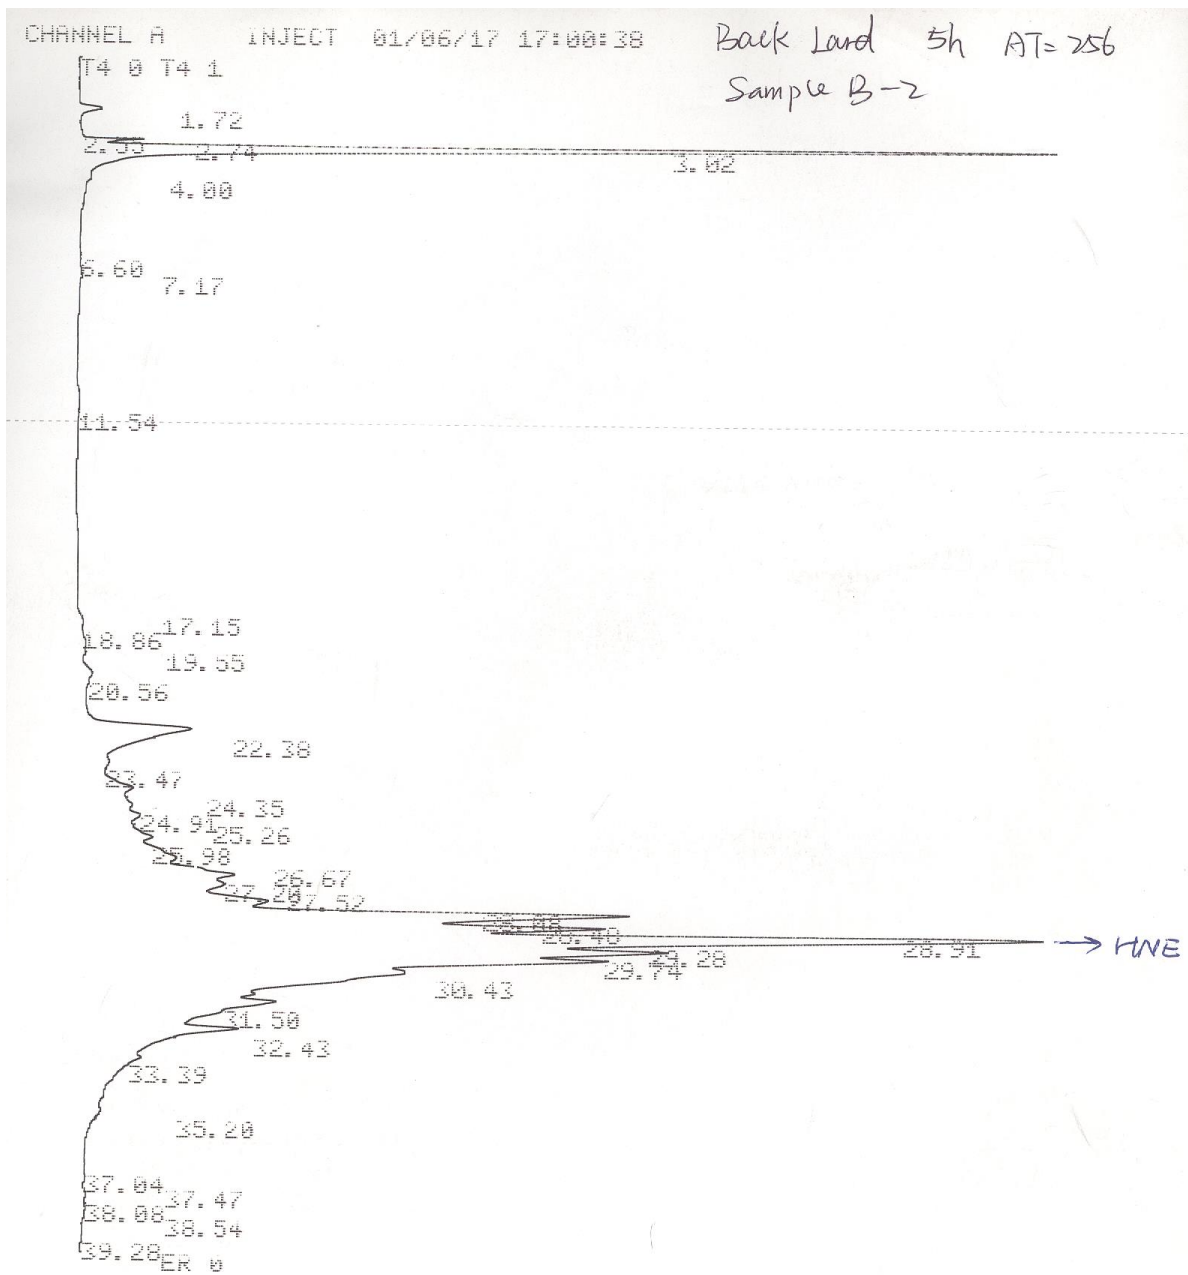 CHANNEL A INJECT 01/06/17 17:00:38
Back Lard 5h AT=256
Sample B-2
T4 0 T4 1
1.72
2.74
3.02
4.00
6.60
7.17
11.54
17.15
18.86
19.55
20.56
22.38
23.47
24.35
24.91
25.26
25.98
26.67
27.20
27.52
28.91
→ HNE
29.28
29.74
30.43
31.50
32.43
33.39
35.20
37.04
37.47
38.08
38.54
39.28
ER 0